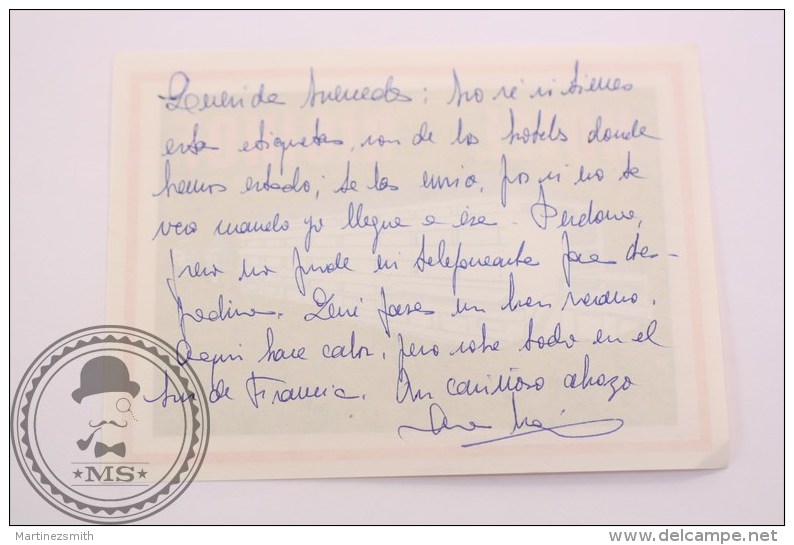 Querida Mercedes: no sé si tienes
estas etiquetas, son de los hotels donde
hemos estado; te las envio, por si no te
veo cuando yo llegue a ésa. Perdona,
pero no pude ni telefonearte para des-
pedirme. Qué pases un buen verano.
Aqui hace calor, pero sobre todo en el
Sur de Francia. Un cariñoso abrazo
MS
Martinezsmith
www.delcampe.net